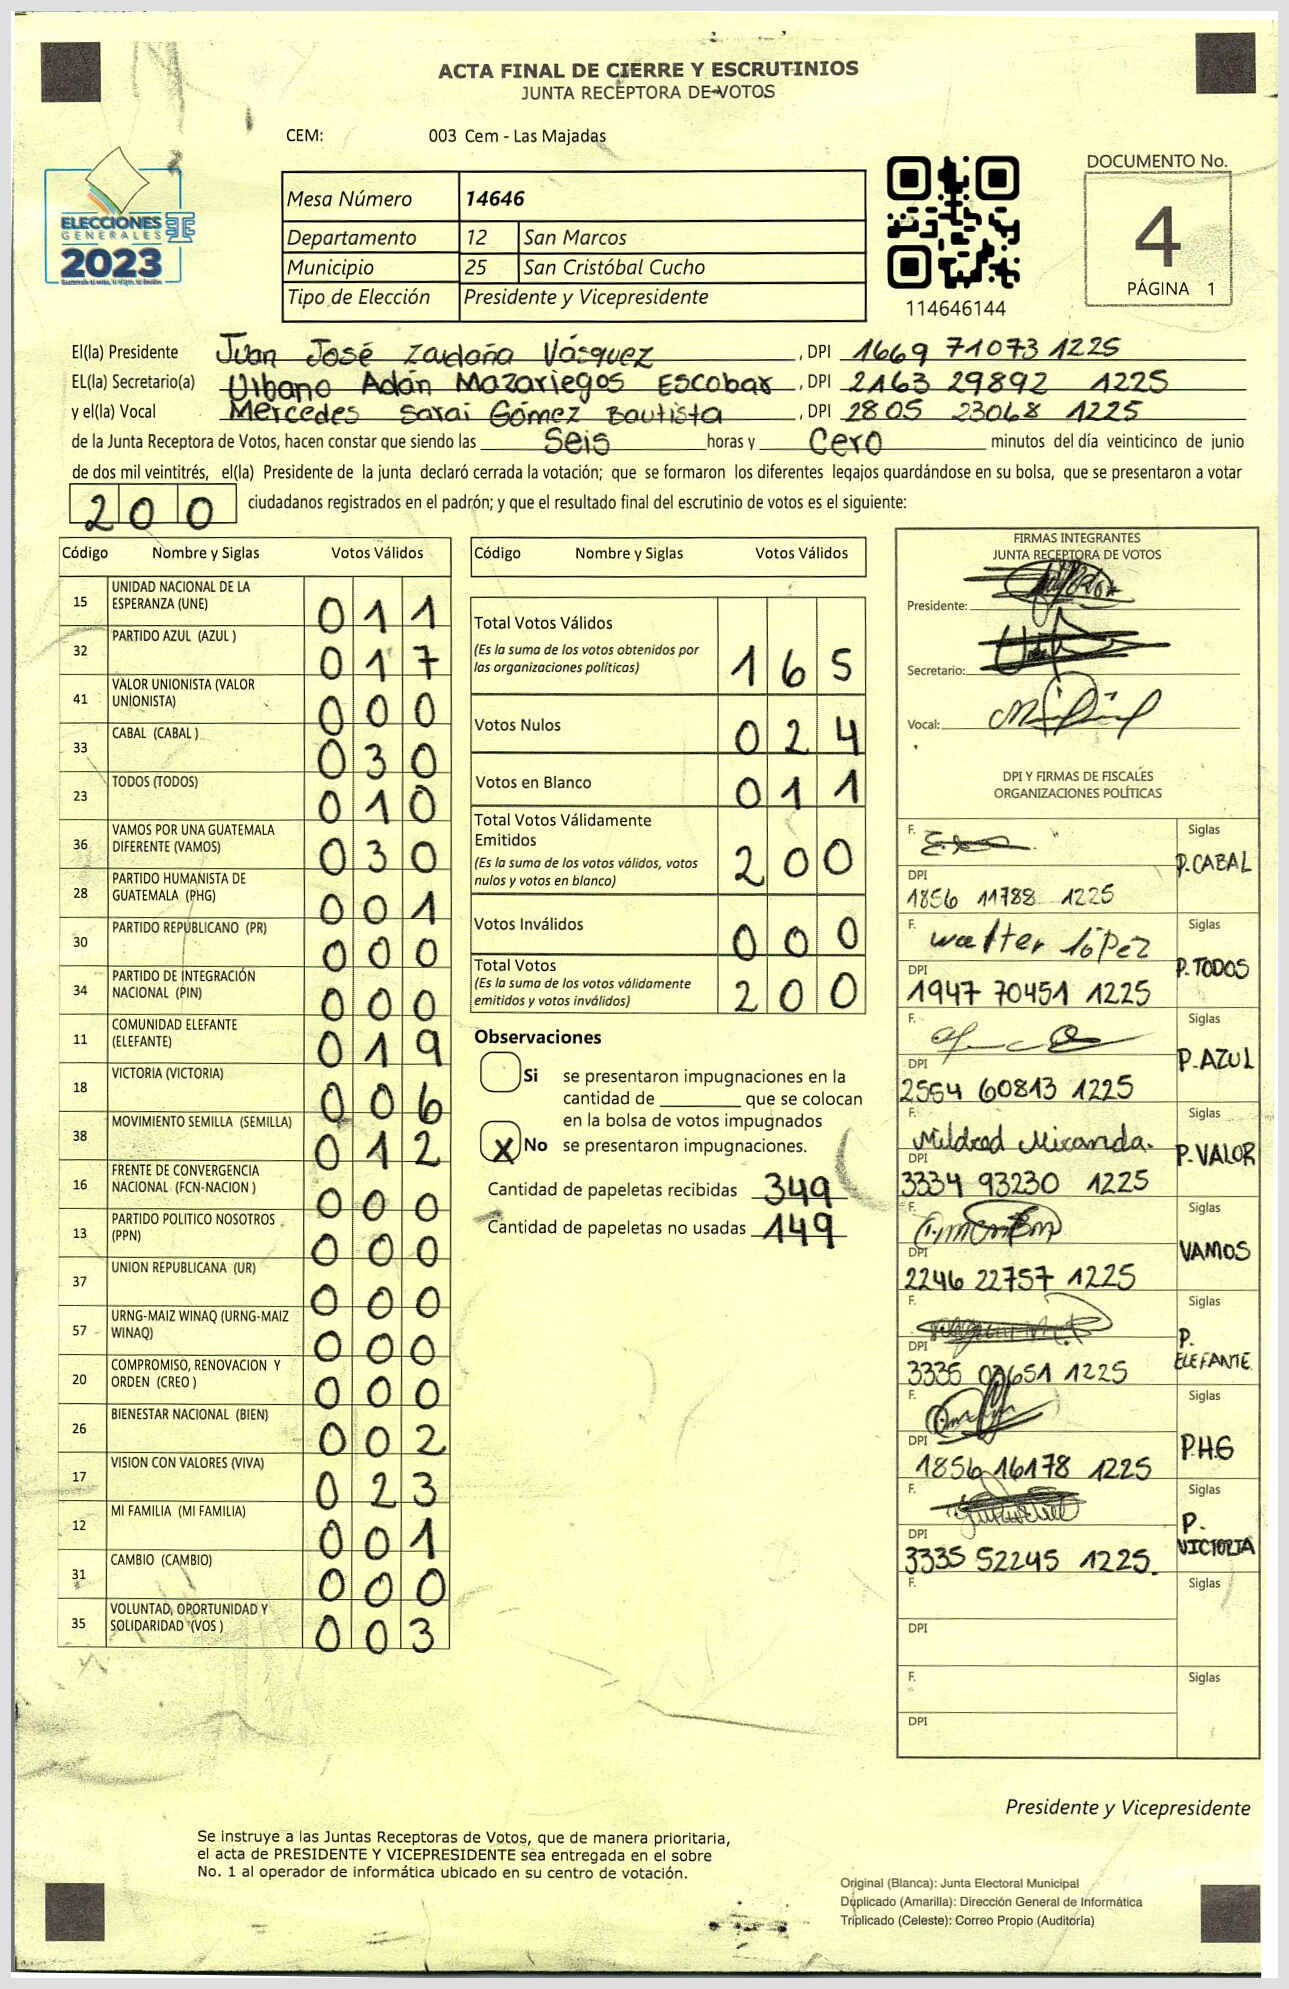 ACTA FINAL DE CIERRE Y ESCRUTINIOS
JUNTA RECEPTORA DE VOTOS
CEM: 003 Cem - Las Majadas
ELECCIONES
GENERALES
2023
Mesa Número 14646
Departamento 12 San Marcos
Municipio 25 San Cristóbal Cucho
Tipo de Elección Presidente y Vicepresidente
114646144
DOCUMENTO No.
4
PÁGINA 1
El(la) Presidente Juan José Zaldaña Vásquez, DPI 1669 71073 1225
EL(la) Secretario(a) Urbano Adán Mazariegos Escobar, DPI 2163 29892 1225
y el(la) Vocal Mercedes Saraí Gómez Bautista, DPI 2805 23068 1225
de la Junta Receptora de Votos, hacen constar que siendo las Seis horas y Cero minutos del día veinticinco de junio
de dos mil veintitrés, el(la) Presidente de la junta declaró cerrada la votación; que se formaron los diferentes legajos guardándose en su bolsa, que se presentaron a votar
200 ciudadanos registrados en el padrón; y que el resultado final del escrutinio de votos es el siguiente:
Código Nombre y Siglas Votos Válidos
15 UNIDAD NACIONAL DE LA ESPERANZA (UNE) 011
32 PARTIDO AZUL (AZUL ) 017
41 VALOR UNIONISTA (VALOR UNIONISTA) 000
33 CABAL (CABAL ) 030
23 TODOS (TODOS) 010
36 VAMOS POR UNA GUATEMALA DIFERENTE (VAMOS) 030
28 PARTIDO HUMANISTA DE GUATEMALA (PHG) 001
30 PARTIDO REPUBLICANO (PR) 000
34 PARTIDO DE INTEGRACIÓN NACIONAL (PIN) 000
11 COMUNIDAD ELEFANTE (ELEFANTE) 019
18 VICTORIA (VICTORIA) 006
38 MOVIMIENTO SEMILLA (SEMILLA) 012
16 FRENTE DE CONVERGENCIA NACIONAL (FCN-NACION ) 000
13 PARTIDO POLITICO NOSOTROS (PPN) 000
37 UNION REPUBLICANA (UR) 000
57 URNG-MAIZ WINAQ (URNG-MAIZ WINAQ) 000
20 COMPROMISO, RENOVACION Y ORDEN (CREO ) 000
26 BIENESTAR NACIONAL (BIEN) 002
17 VISION CON VALORES (VIVA) 023
12 MI FAMILIA (MI FAMILIA) 001
31 CAMBIO (CAMBIO) 000
35 VOLUNTAD, OPORTUNIDAD Y SOLIDARIDAD (VOS ) 003
Código Nombre y Siglas Votos Válidos
Total Votos Válidos 165
(Es la suma de los votos obtenidos por
las organizaciones políticas)
Votos Nulos 024
Votos en Blanco 011
Total Votos Válidamente
Emitidos 200
(Es la suma de los votos válidos, votos
nulos y votos en blanco)
Votos Inválidos 000
Total Votos 200
(Es la suma de los votos válidamente
emitidos y votos inválidos)
Observaciones
Si se presentaron impugnaciones en la
cantidad de que se colocan
en la bolsa de votos impugnados
X No se presentaron impugnaciones.
Cantidad de papeletas recibidas 349
Cantidad de papeletas no usadas 149
FIRMAS INTEGRANTES
JUNTA RECEPTORA DE VOTOS
Presidente:
Secretario:
Vocal:
DPI Y FIRMAS DE FISCALES
ORGANIZACIONES POLÍTICAS
F. Siglas
P. CABAL
DPI
1856 11788 1225
F. Walter lópez Siglas
P. TODOS
DPI
1947 70451 1225
F. Siglas
P. AZUL
DPI
2554 60813 1225
F. Mildred Miranda. Siglas
P. VALOR
DPI
3334 93230 1225
F. Siglas
VAMOS
DPI
2246 22757 1225
F. Siglas
P. ELEFANTE
DPI
3335 1225
F. Siglas
P.HG
DPI
1856 16178 1225
F. Siglas
P. VICTORIA
DPI
3335 52245 1225.
F. Siglas
DPI
F. Siglas
DPI
Presidente y Vicepresidente
Se instruye a las Juntas Receptoras de Votos, que de manera prioritaria,
el acta de PRESIDENTE Y VICEPRESIDENTE sea entregada en el sobre
No. 1 al operador de informática ubicado en su centro de votación.
Original (Blanca): Junta Electoral Municipal
Duplicado (Amarilla): Dirección General de Informática
Triplicado (Celeste): Correo Propio (Auditoría)